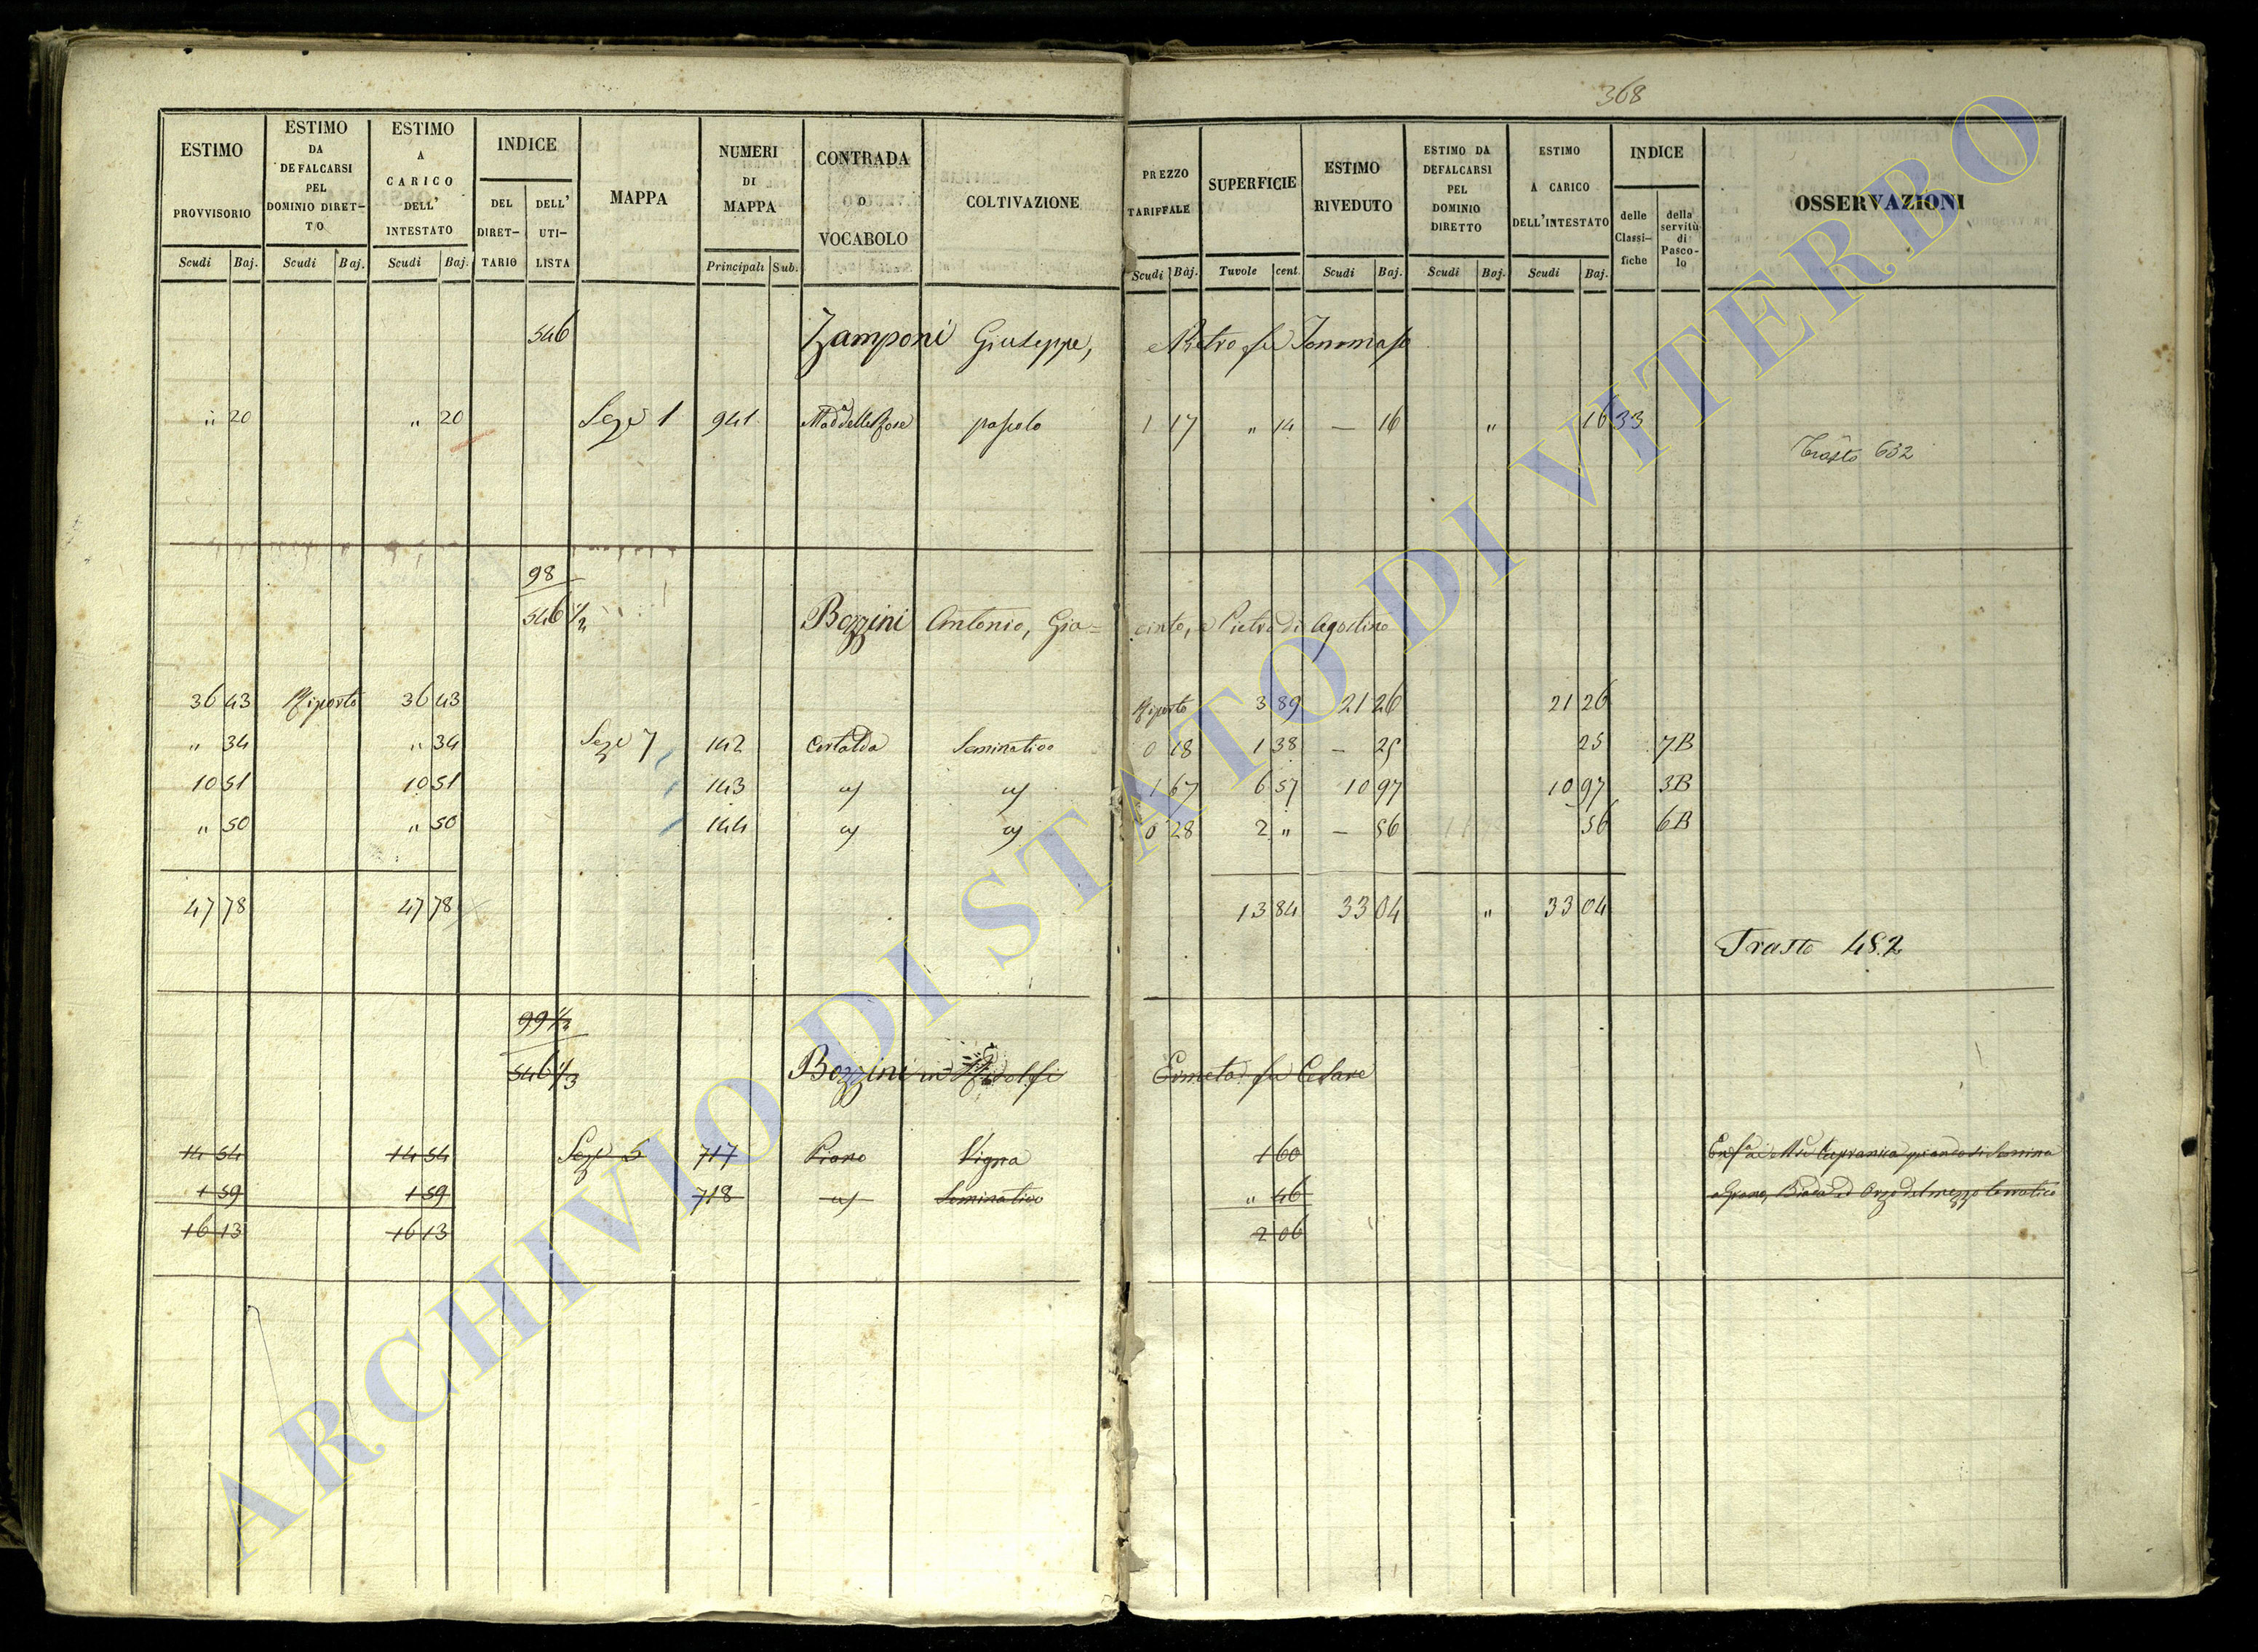 368
ESTIMO PROVVISORIO Scudi Baj.
ESTIMO DA DEFALCARSI PEL DOMINIO DIRETTO Scudi Baj.
ESTIMO A CARICO DELL' INTESTATO Scudi Baj.
INDICE DEL DIRETTARIO DELL' UTILISTA
MAPPA
NUMERI DI MAPPA Principali Sub.
CONTRADA O VOCABOLO
COLTIVAZIONE
PREZZO TARIFFALE Scudi Baj.
SUPERFICIE Tavole cent.
ESTIMO RIVEDUTO Scudi Baj.
ESTIMO DA DEFALCARSI PEL DOMINIO DIRETTO Scudi Baj.
ESTIMO A CARICO DELL'INTESTATO Scudi Baj.
INDICE delle Classifiche della servitù di Pascolo
OSSERVAZIONI
546 Zamponi Giuseppe, e Pietro fu Tommaso
" 20 " 20 Seze 1 941 pascolo 1 17 " 14 — 16 " 16 33
Trasto 632
98
546 1/2 Bozzini Antonio, Gia= cinto, e Pietro di Agostino
36 43 Riporto 36 43 Riporto 3 89 21 26 21 26
" 34 " 34 Seze 7 142 Seminativo 0 18 1 38 — 25 25 7B
10 51 10 51 143 1 67 6 57 10 97 10 97 3B
" 50 " 50 144 0 28 2 " — 56 56 6B
47 78 47 78 13 84 33 04 " 33 04
Trasto 482
99 1/2
546 1/3 Bozzini in Ridolfi Ermeta fu Cesare
14 54 14 54 Seze 5 717 Piano Vigna 1 60
1 59 1 59 718 Seminativo " 46
16 13 16 13 2 06
ARCHIVIO DI STATO DI VITERBO